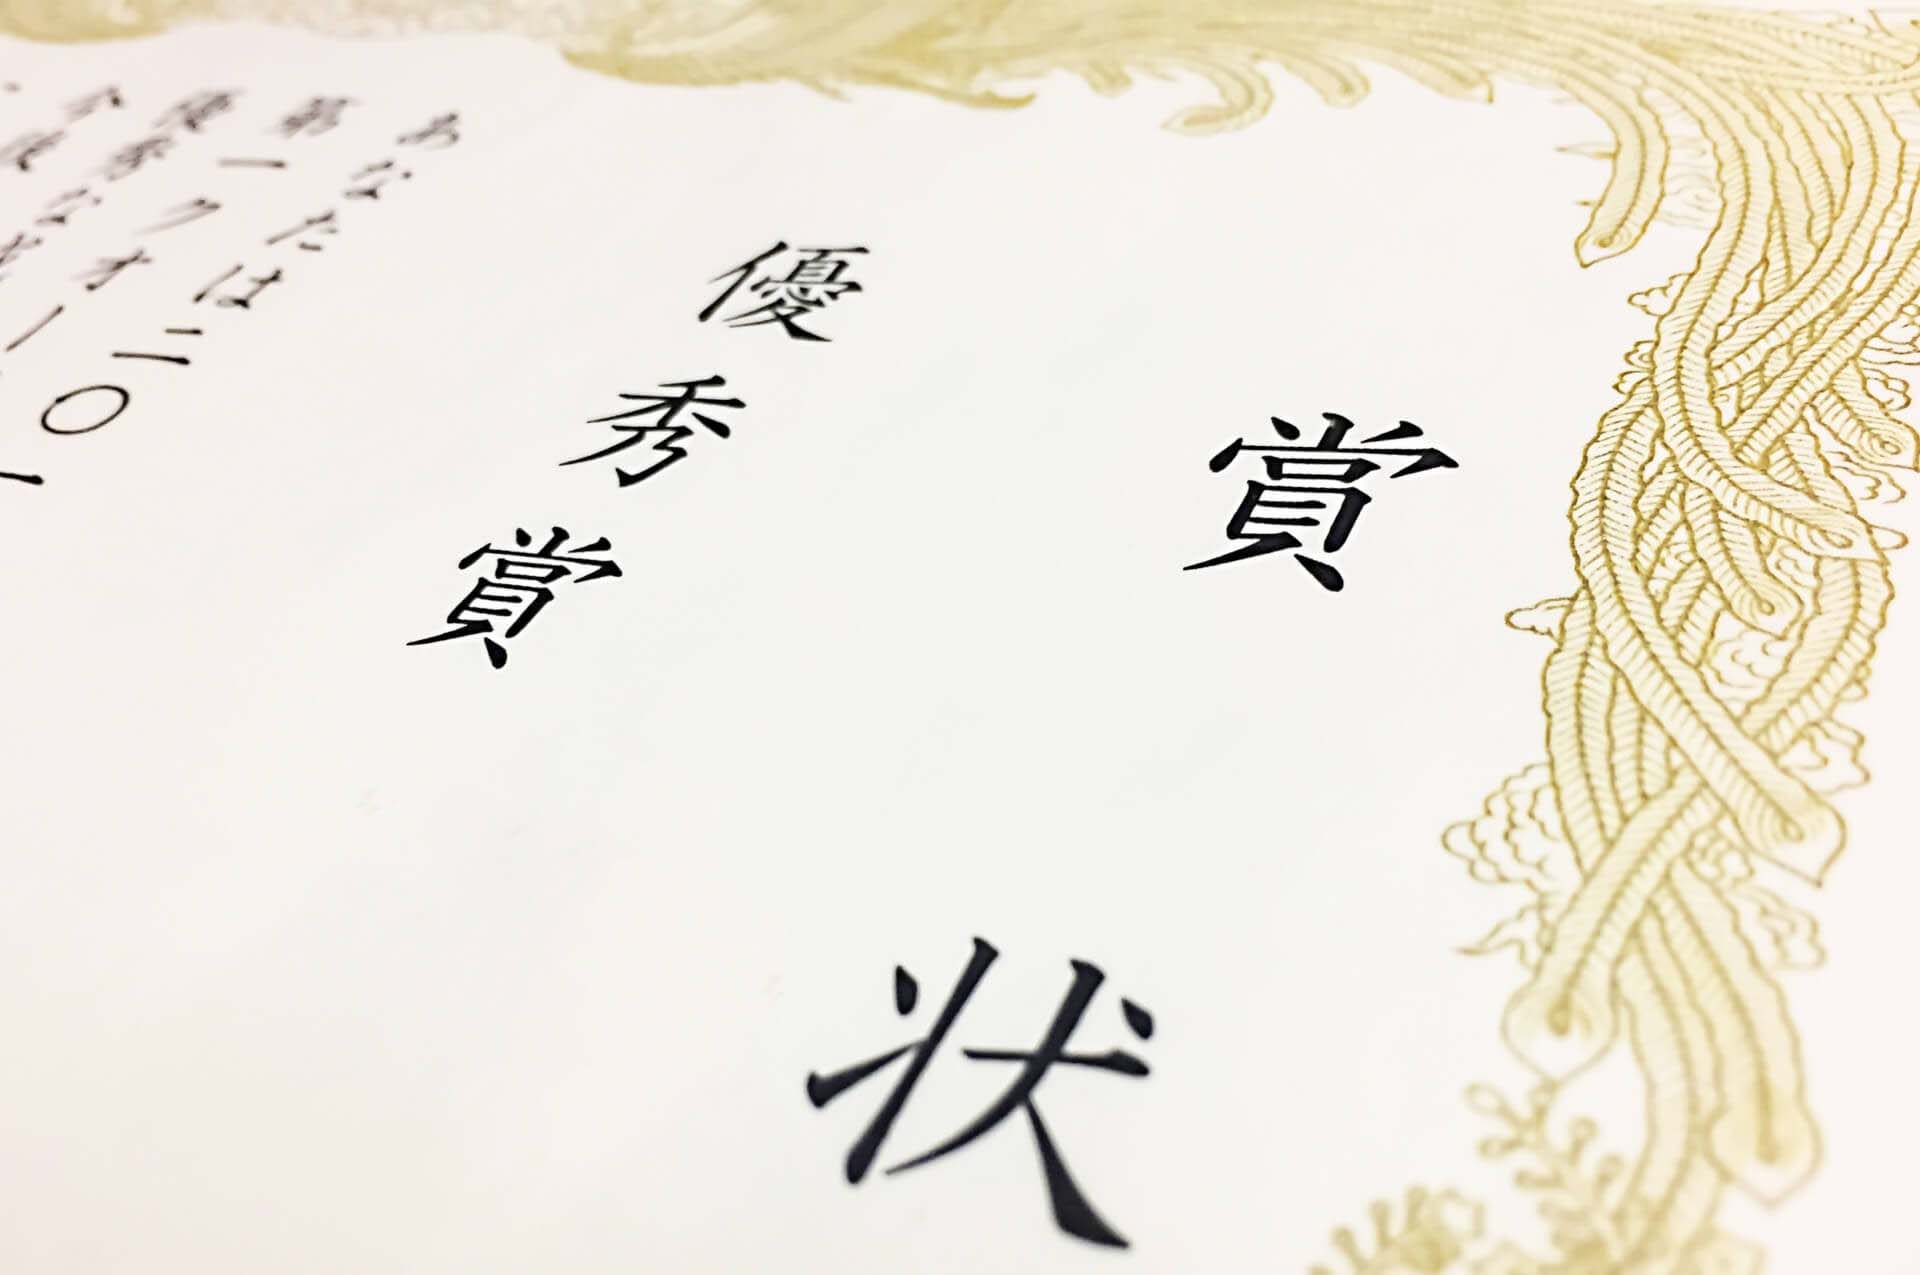 賞状
優秀賞
あなたは二〇一
第一クオー
優秀な
今後